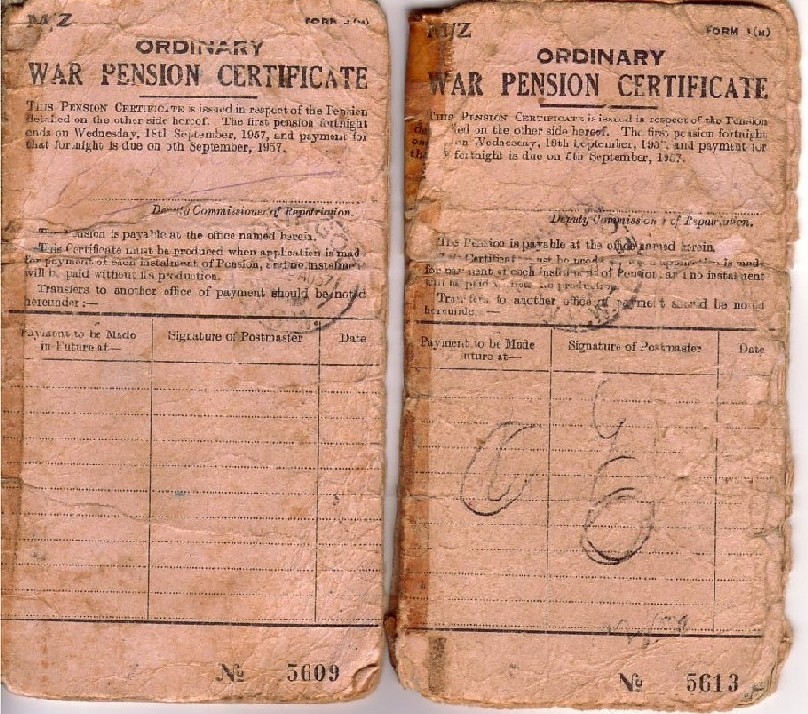 M/Z
FORM
ORDINARY
WAR PENSION CERTIFICATE
THIS PENSION CERTIFICATE is issued in respect of the Pension
detailed on the other side hereof. The first pension fortnight
ends on Wednesday, 18th September, 1957, and payment for
that fortnight is due on 5th September, 1957.
Deputy Commissioner of Repatriation.
Pension is payable at the office named herein.
This Certificate must be produced when application is made
for payment of each instalment of Pension, and no instalment
will be paid without its production.
Transfers to another office of payment should be noted
hereunder:—
Payment to be Made
in Future at—
Signature of Postmaster
Date
No 5609
M/Z
FORM
ORDINARY
WAR PENSION CERTIFICATE
THIS PENSION CERTIFICATE is issued in respect of the Pension
on the other side hereof. The first pension fortnight
on Wednesday, 18th September, and payment for
fortnight is due on 5th September, 1957.
Deputy Commissioner of Repatriation.
The Pension is payable at the office named herein.
Certificate must be is made
for payment of each instalment of Pension, and no instalment
Transfers to another office of payment should be noted
hereunder:—
Payment to be Made
Future at—
Signature of Postmaster
Date
No 5613